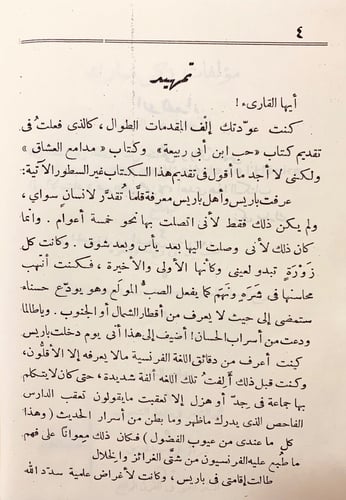 ٤
تمهيد
أيها القارىء !
كنت عوّدتك إلْف المقدمات الطوال، كالذى فعلتُ فى
تقديم كتاب «حب ابن أبى ربيعة» وكتاب «مدامع العشاق»
ولكنى لا أجد ما أقول فى تقديم هذا الكتاب غير السطور الآتية:
عرفت باريس وأهل باريس معرفة قلَّما تُقدَّر لانسان سواى،
ولم يكن ذلك فقط لأنى اتصلت بها نحو خمسة أعوام. وانما
كان ذلك لأنى وصلت اليها بعد يأس وبعد شوق. وكانت كل
زَوْرَةٍ تبدو لعينى وكأنها الأولى والأخيرة، فكنت أنهب
محاسنها فى شَرَهٍ ونَهَمٍ كما يفعل الصب المولَع وهو يودّع حسناء
ستمضى إلى حيث لا يعرف من أقطار الشمال أو الجنوب. وياطالما
ودعت من أسراب الحسان! أضيف إلى هذا أنى يوم دخلت باريس
كنت أعرف من دقائق اللغة الفرنسية مالا يعرفه إلا الأقلُّون،
وكنت قبل ذلك أَلِفتُ تلك اللغه ألفة شديدة، حتى كان لايتكلم
بها جماعة فى جِدٍّ أو هزل إلا تعقبت مايقولون تعقب الدارس
الفاحص الذى يدرك ماظهر وما بطن من أسرار الحديث (وهذا
كل ما عندى من عيوب الفضول) فكان ذلك معوانًا على فهم
ما طُبِع عليه الفرنسيون من شتَّى الغرائز والخلال
طالت إقامتى فى باريس، وكانت لأغراض علمية سدّد الله